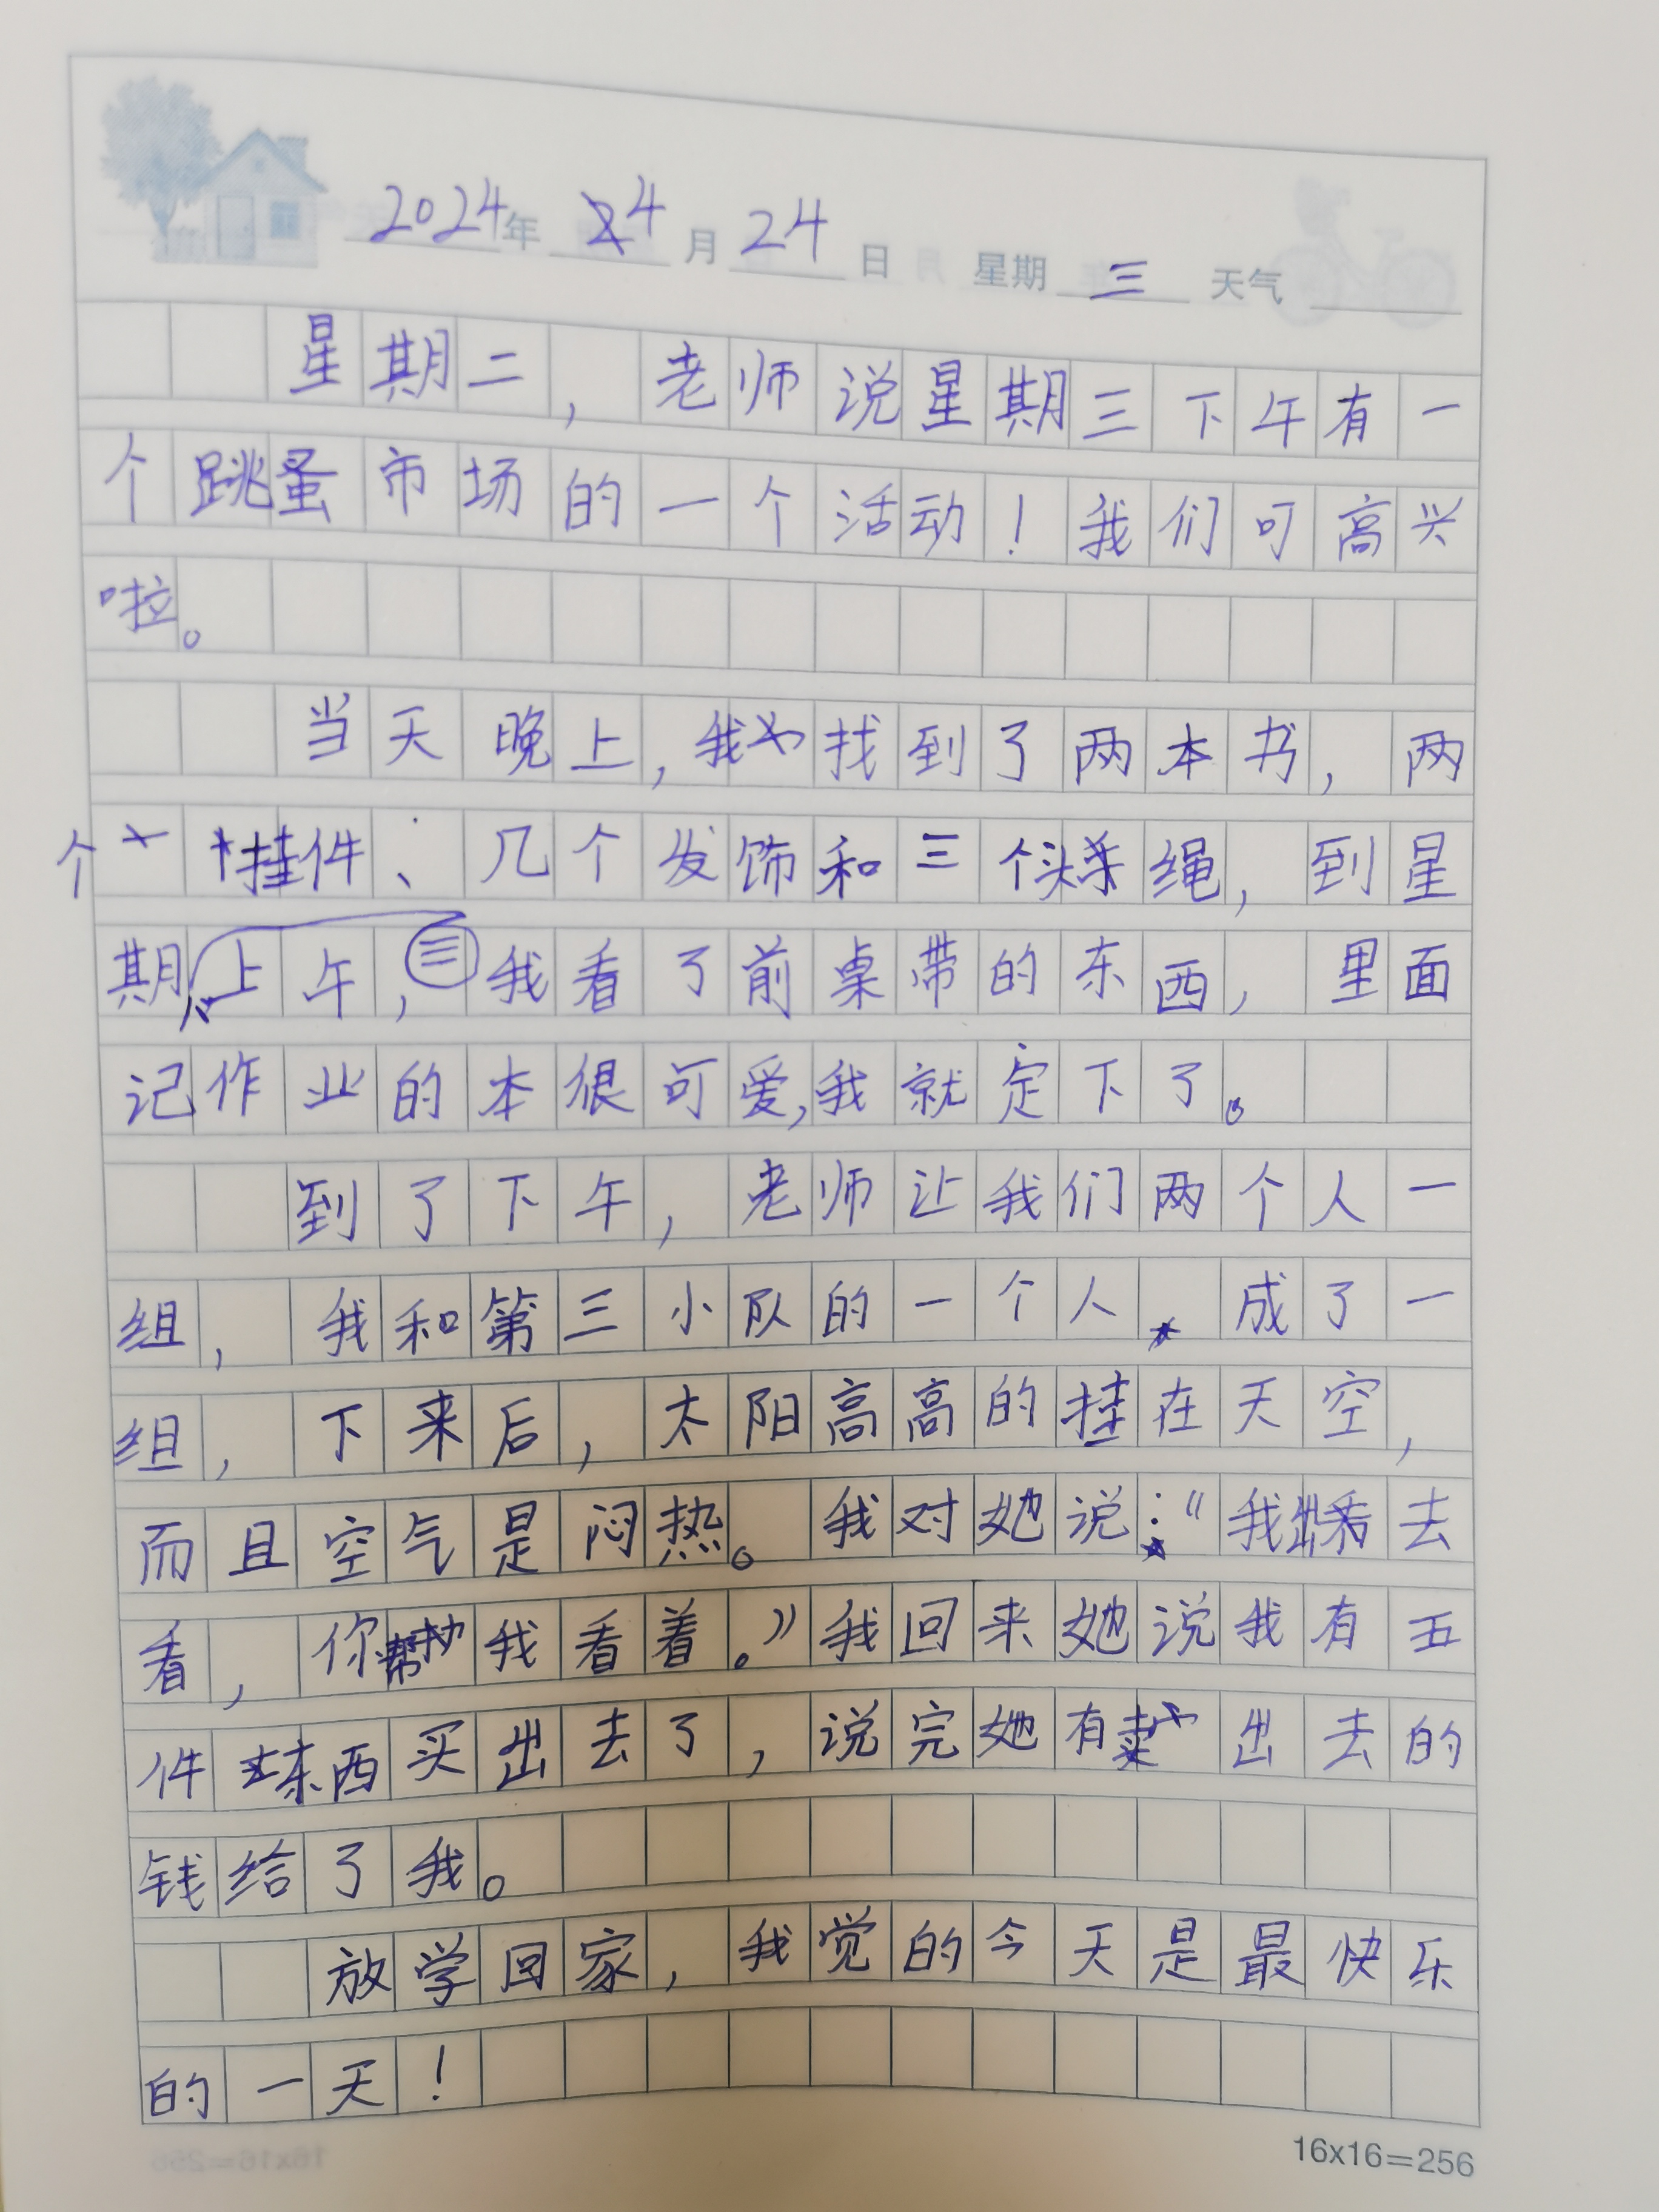 2024年 4月24日 星期三 天气
星期二，老师说星期三下午有一
个跳蚤市场的一个活动！我们可高兴
啦。
当天晚上，我找到了两本书，两
个挂件、几个发饰和三个头绳，到星
期三上午，我看了前桌带的东西，里面
记作业的本很可爱，我就定下了。
到了下午，老师让我们两个人一
组，我和第三小队的一个人成了一
组，下来后，太阳高高的挂在天空，
而且空气是闷热。我对她说：“我出去
看，你帮我看着。”我回来她说我有五
件东西买出去了，说完她有卖出去的
钱给了我。
放学回家，我觉的今天是最快乐
的一天！
16x16=256